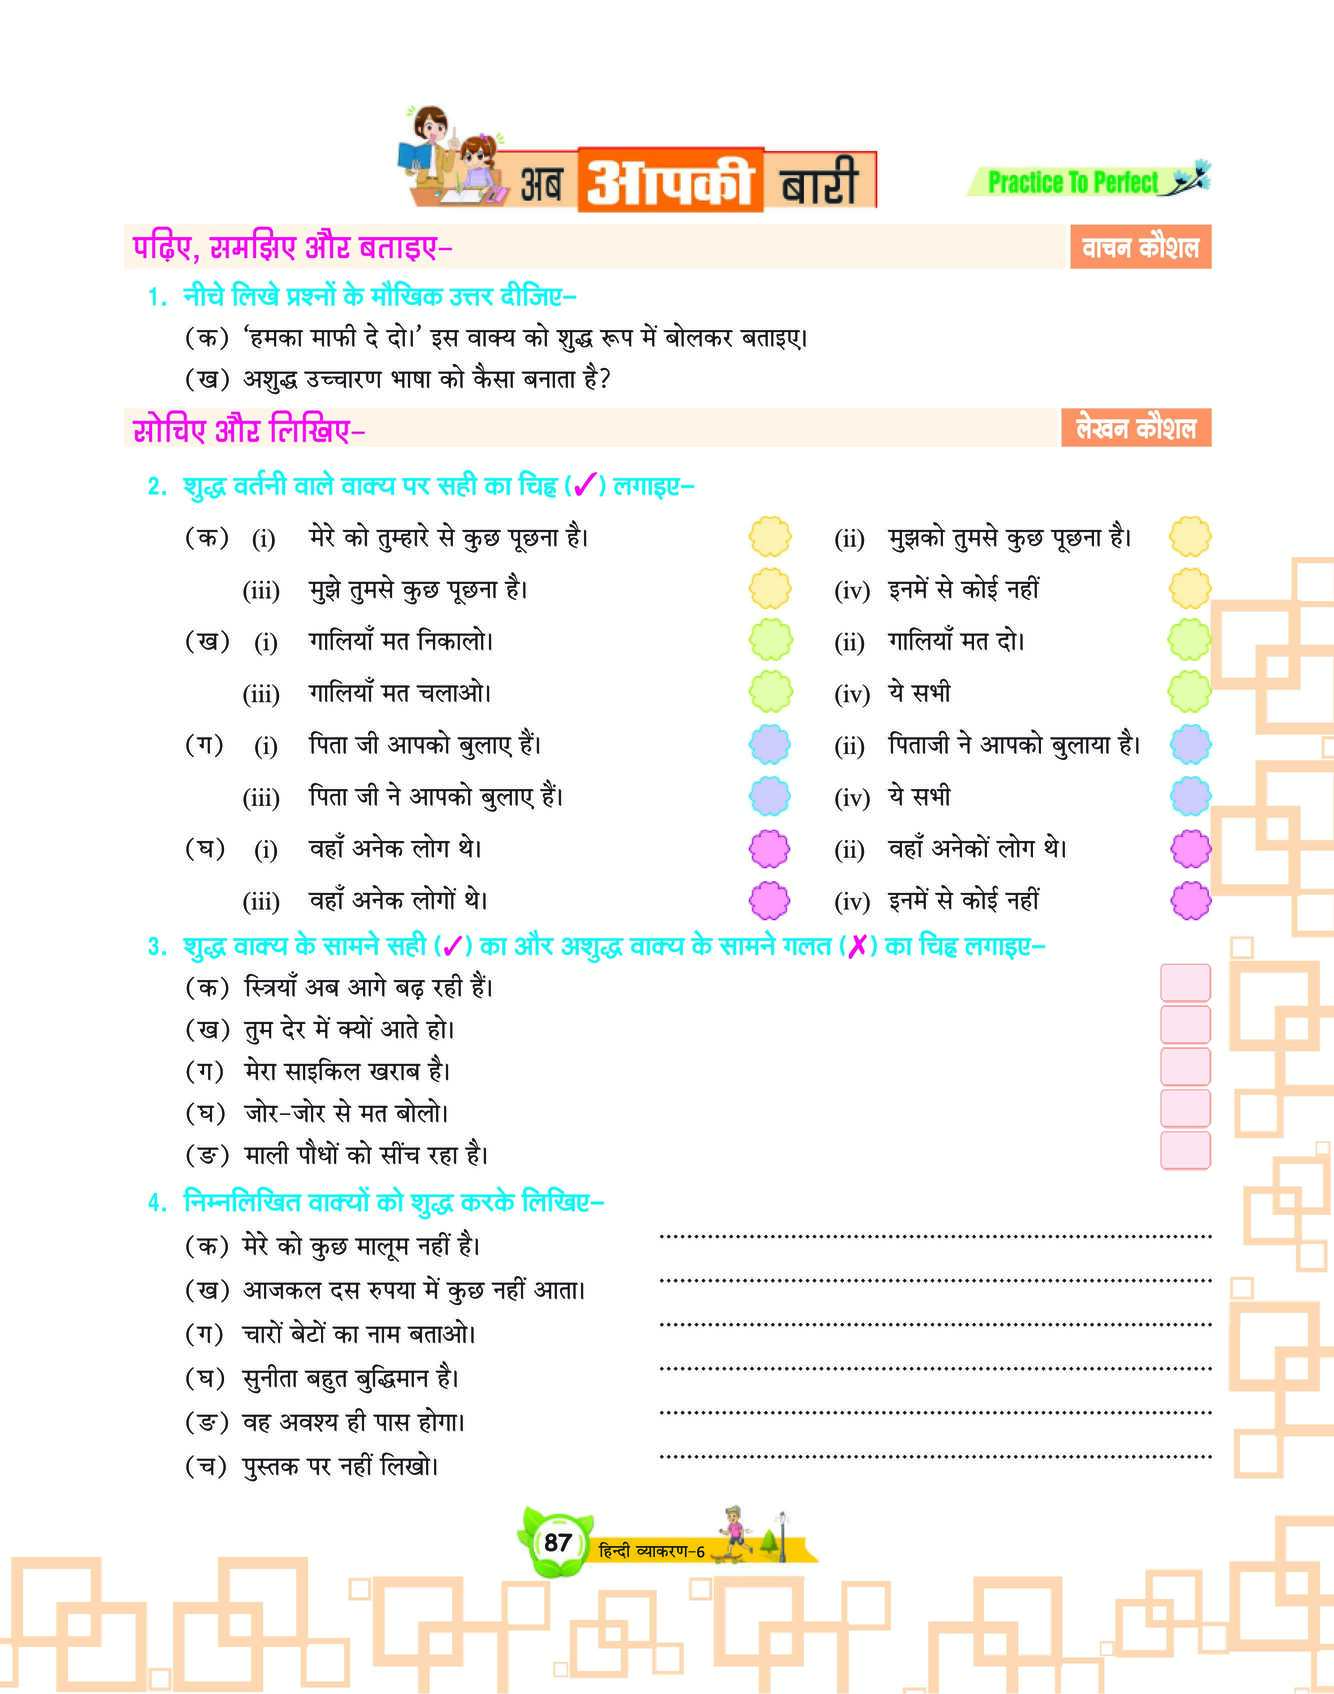 अब आपकी बारी
Practice To Perfect
पढ़िए, समझिए और बताइए-
वाचन कौशल
1. नीचे लिखे प्रश्नों के मौखिक उत्तर दीजिए-
(क) ‘हमका माफी दे दो।’ इस वाक्य को शुद्ध रूप में बोलकर बताइए।
(ख) अशुद्ध उच्चारण भाषा को कैसा बनाता है?
सोचिए और लिखिए-
लेखन कौशल
2. शुद्ध वर्तनी वाले वाक्य पर सही का चिह्न (✓) लगाइए-
(क) (i) मेरे को तुम्हारे से कुछ पूछना है। (ii) मुझको तुमसे कुछ पूछना है।
(iii) मुझे तुमसे कुछ पूछना है। (iv) इनमें से कोई नहीं
(ख) (i) गालियाँ मत निकालो। (ii) गालियाँ मत दो।
(iii) गालियाँ मत चलाओ। (iv) ये सभी
(ग) (i) पिता जी आपको बुलाए हैं। (ii) पिताजी ने आपको बुलाया है।
(iii) पिता जी ने आपको बुलाए हैं। (iv) ये सभी
(घ) (i) वहाँ अनेक लोग थे। (ii) वहाँ अनेकों लोग थे।
(iii) वहाँ अनेक लोगों थे। (iv) इनमें से कोई नहीं
3. शुद्ध वाक्य के सामने सही (✓) का और अशुद्ध वाक्य के सामने गलत (✗) का चिह्न लगाइए-
(क) स्त्रियाँ अब आगे बढ़ रही हैं।
(ख) तुम देर में क्यों आते हो।
(ग) मेरा साइकिल खराब है।
(घ) जोर-जोर से मत बोलो।
(ङ) माली पौधों को सींच रहा है।
4. निम्नलिखित वाक्यों को शुद्ध करके लिखिए-
(क) मेरे को कुछ मालूम नहीं है।
(ख) आजकल दस रुपया में कुछ नहीं आता।
(ग) चारों बेटों का नाम बताओ।
(घ) सुनीता बहुत बुद्धिमान है।
(ङ) वह अवश्य ही पास होगा।
(च) पुस्तक पर नहीं लिखो।
87 हिन्दी व्याकरण-6